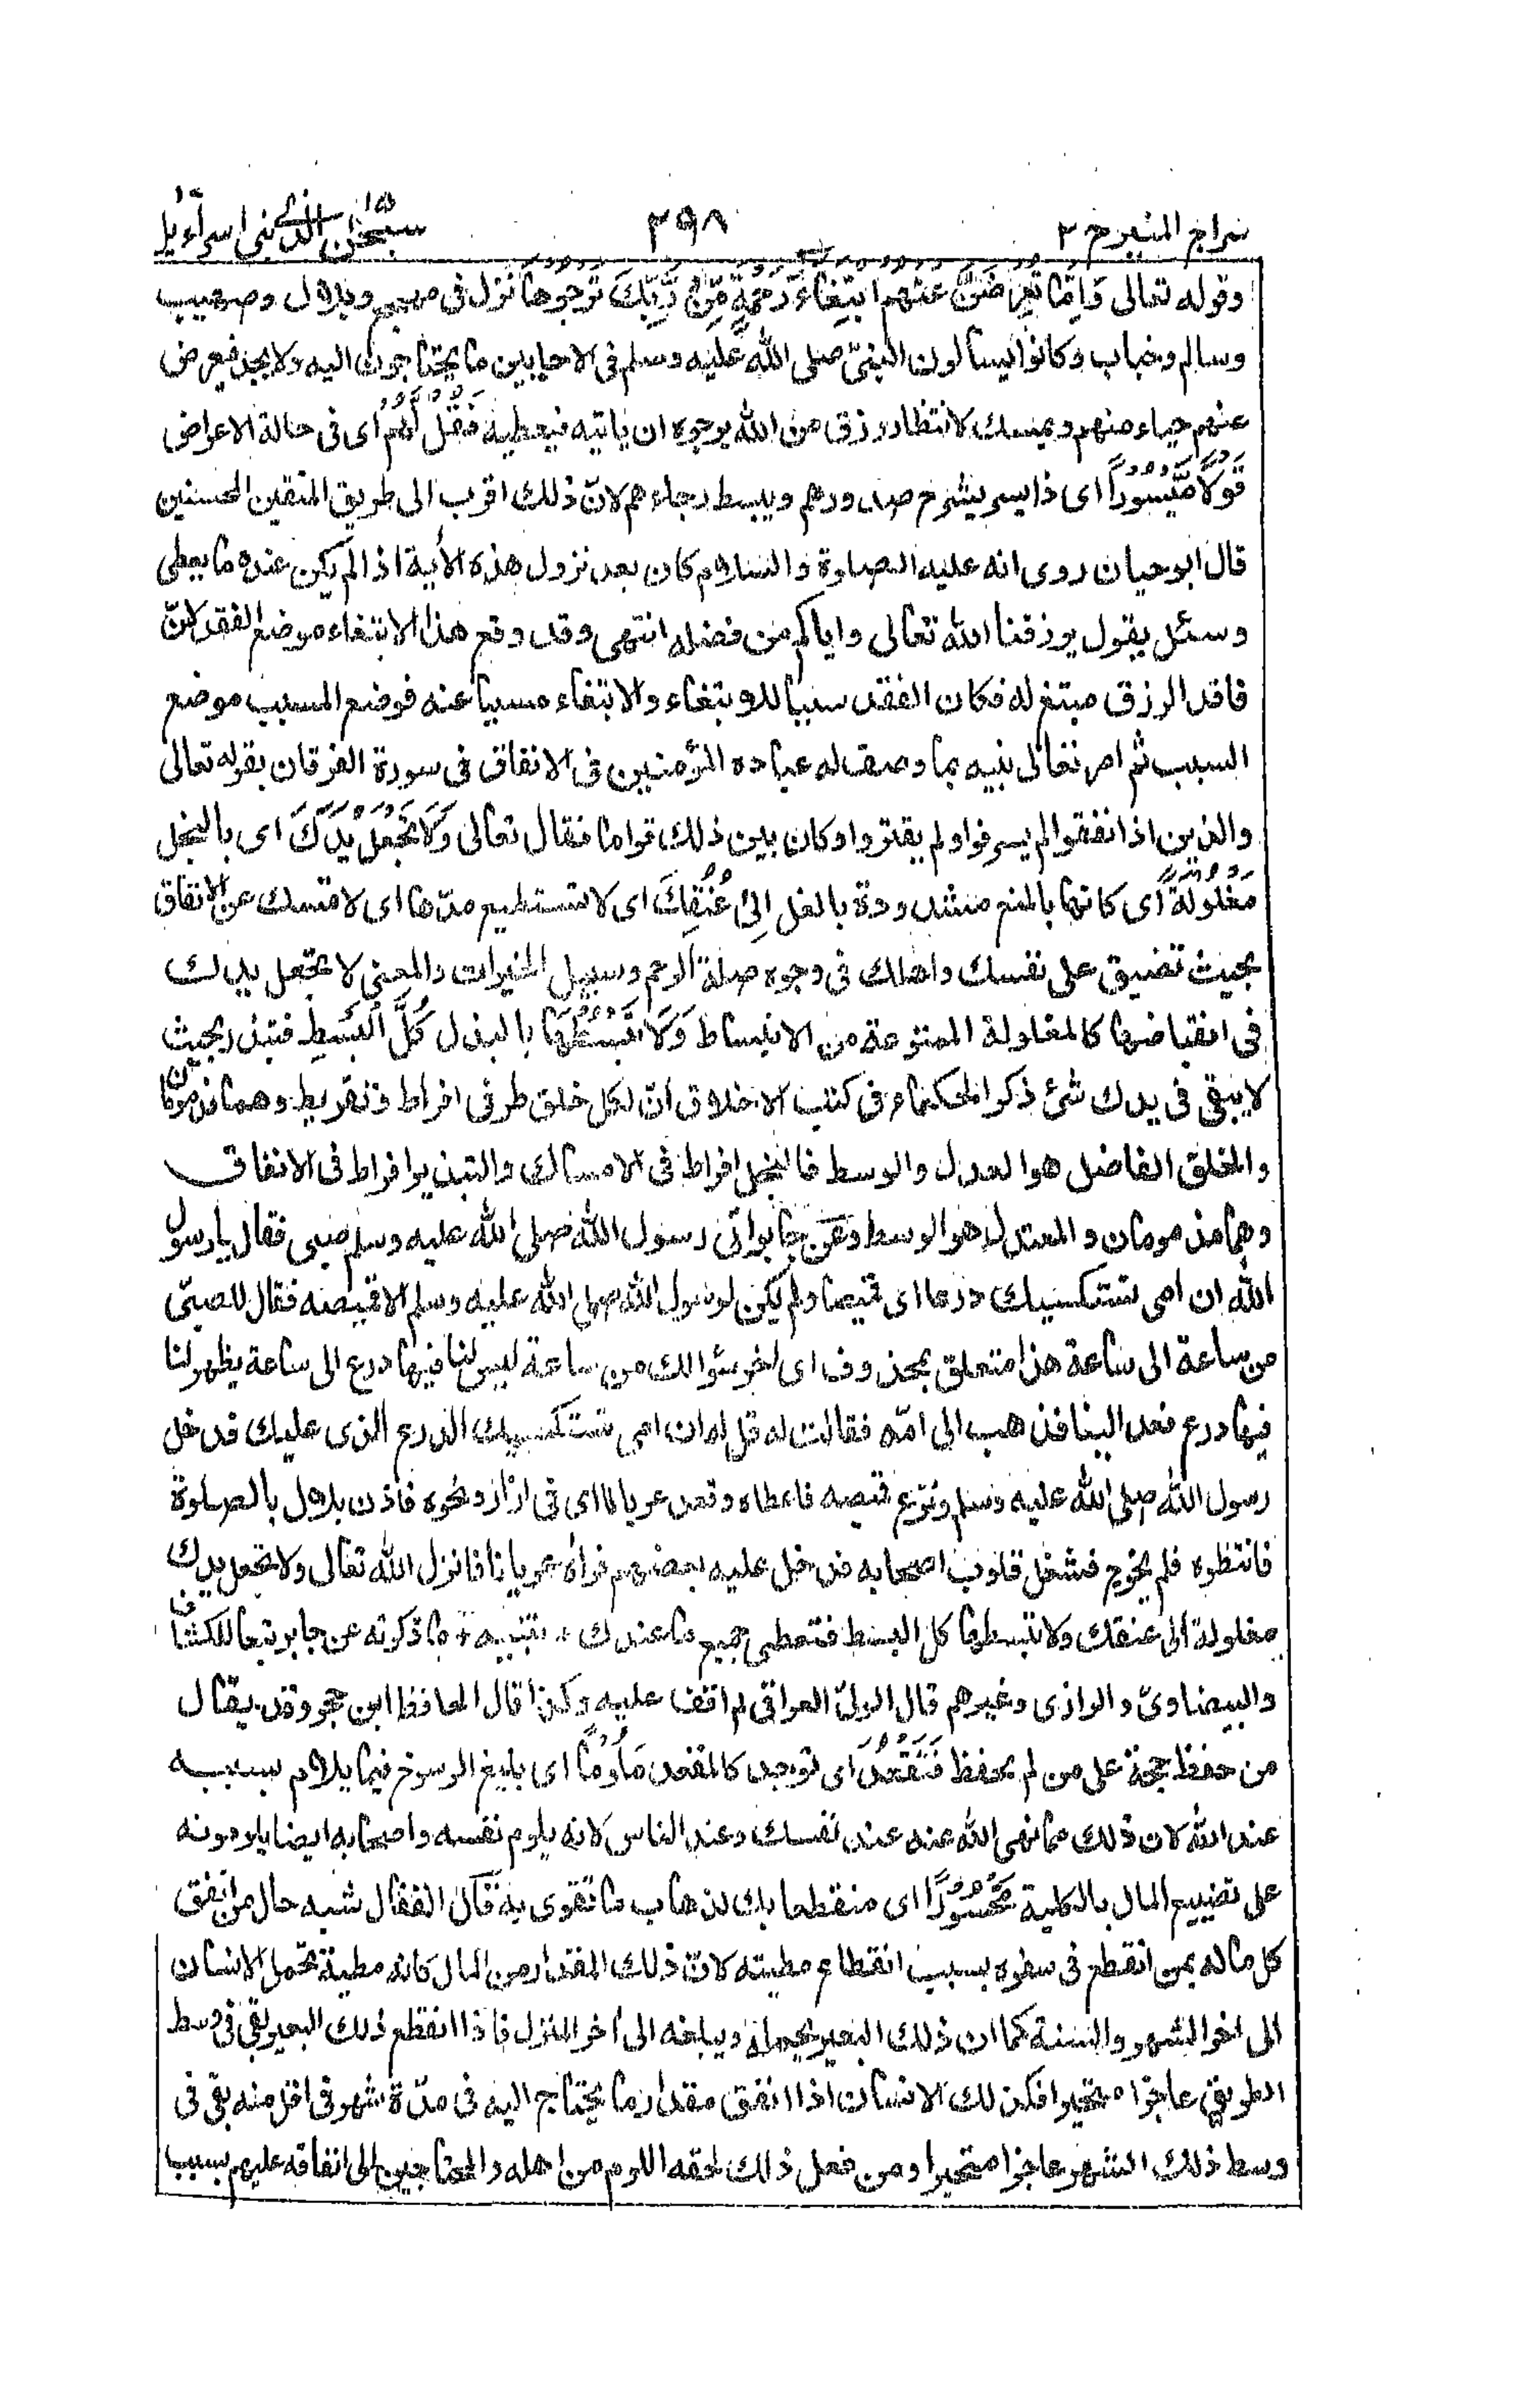 سراج المنير ج ٢
٢٩٨
سبحٰن الذی ١٥ بنی اسرآءيل
وقوله تعالى وَاِمَّا تُعْرِضَنَّ عَنْهُمُ ابْتِغَاءَ رَحْمَةٍ مِّنْ رَّبِّكَ تَرْجُوهَا نزل فى مهجع وبلال وصهيب
وسالم وخباب وكانوا يسألون النبىّ صلى الله عليه وسلم فى الاحايين ما يحتاجون اليه ولا يجد فيعرض
عنهم حياء منهم ويمسك لانتظار رزق من الله يرجوه ان ياتيه فيعطيه فَقُلْ لَّهُمْ اى فى حالة الاعراض
قَوْلًا مَّيْسُوْرًا اى ذا يسر يشرح صدورهم ويبسط رجاءهم لانّ ذلك اقرب الى طريق المتقين المحسنين
قال ابو حيان روى انه عليه الصلوة والسلام كان بعد نزول هذه الأية اذا لم يكن عنده ما يعطى
وسئل يقول يرزقنا الله تعالى واياكم من فضله انتهى وقد وقع هذا الابتغاء موضع الفقد لانّ
فاقد الرزق مبتغ له فكان الفقد سببا للابتغاء والابتغاء مسببا عنه فوضع المسبب موضع
السبب ثم امر تعالى نبيه بما وصف له عباده المؤمنين فى الانفاق فى سورة الفرقان بقوله تعالى
والذين اذا انفقوا لم يسرفوا ولم يقتروا وكان بين ذلك قواما فقال تعالى وَلَا تَجْعَلْ يَدَكَ اى بالبخل
مَغْلُوْلَةً اى كانها بالمنع مشدودة بالغل اِلٰى عُنُقِكَ اى لا تستطيع مدّها اى لا تمسك عن الانفاق
بحيث تضيق على نفسك واهلك فى وجوه صلة الرحم وسبيل الخيرات والمعنى لا تجعل يدك
فى انقباضها كالمغلولة الممنوعة من الانبساط وَلَا تَبْسُطْهَا بالبذل كُلَّ الْبَسْطِ فتبذر بحيث
لا يبقى فى يدك شئ ذكر الحكماء فى كتب الاخلاق انّ لكل خلق طرفى افراط وتفريط وهما مذمومان
والخلق الفاضل هو العدل والوسط فالبخل افراط فى الامساك والتبذير افراط فى الانفاق
وهما مذمومان والمعتدل هو الوسط وعن جابر اتى رسول الله صلى الله عليه وسلم صبى فقال يا رسول
الله ان امى تستكسيك درعا اى قميصا ولم يكن لرسول الله صلى الله عليه وسلم الا قميصه فقال للصبىّ
من ساعة الى ساعة هذا متعلق بمحذوف اى اخر سؤالك من ساعة ليس لنا فيها درع الى ساعة يظهر لنا
فيها درع فعد الينا فذهب الى امّه فقالت له قل له ان امى تستكسيك الدرع الذى عليك فدخل
رسول الله صلى الله عليه وسلم ونزع قميصه فاعطاه وقعد عريانا اى فى ازار ونحوه فاذن بلال بالصلوة
فانتظروه فلم يخرج فشغل قلوب اصحابه فدخل عليه بعضهم فرأه عريانا فانزل الله تعالى ولا تجعل يدك
مغلولة الى عنقك ولا تبسطها كل البسط فتعطى جميع ما عندك ؞ تنبيه ؞ ما ذكرته عن جابر تبعا للكشاف
والبيضاوىّ والرازى وغيرهم قال الولىّ العراقى لم اقف عليه وكذا قال الحافظ ابن حجر وقد يقال
من حفظ حجة على من لم يحفظ فَتَقْعُدَ اى توجد كالمقعد مَلُوْمًا اى بليغ الرسوخ فيما يلام بسببه
عند الله لان ذلك مما نهى الله عنه عند نفسك وعند الناس لانه يلوم نفسه واصحابه ايضا يلومونه
على تضييع المال بالكلية مَّحْسُوْرًا اى منقطعا بك لذهاب ما تقوى به قال القفال شبه حال من انفق
كل ماله بمن انقطع فى سفره بسبب انقطاع مطيته لانّ ذلك المقدار من المال كانه مطية تحمل الانسان
الى اخر الشهر والسنة كما ان ذلك البعير يحمله ويبلغه الى أخر المنزل فاذا انقطع ذلك البعير بقى فى وسط
الطريق عاجزا متحيرا فكذلك الانسان اذا انفق مقدار ما يحتاج اليه فى مدّة شهر فى اقل منه بقى فى
وسط ذلك الشهر عاجزا متحيرا ومن فعل ذلك لحقه اللوم من اهله والمحتاجين الى انفاقه عليهم بسبب